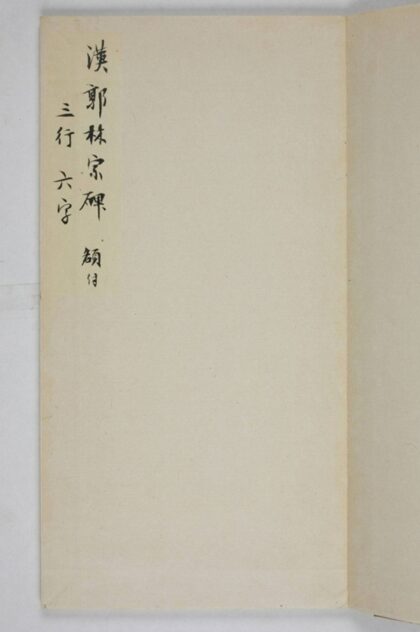 漢郭林宗碑 額付
三行 六字